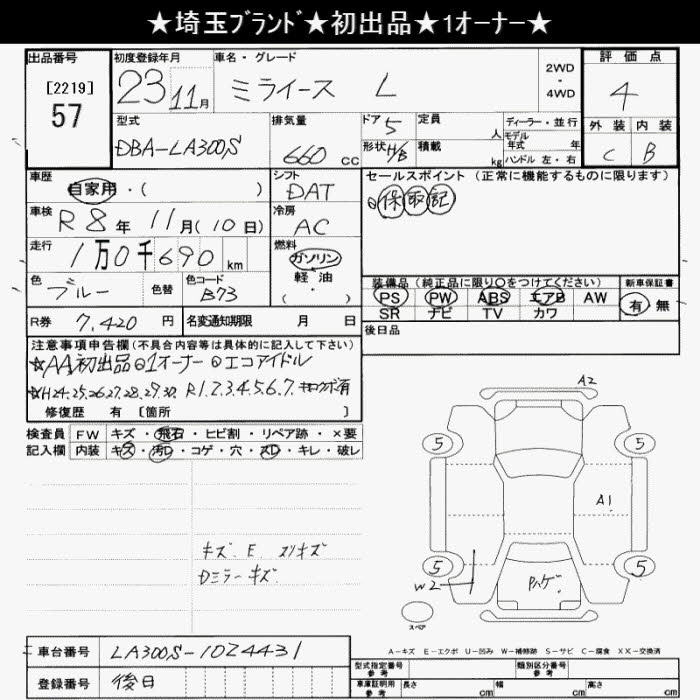 ★埼玉ブランド★初出品★1オーナー★
出品番号 初度登録年月 車名・グレード 評価点
[2219] 57 23 11月 ミライース L 2WD・4WD 4
型式 排気量 ドア 5 定員 人 ディーラー・並行 外装 内装
DBA-LA300S 660 cc 形状 H/B 積載 kg モデル年式 年式 ハンドル 左・右 C B
車歴 シフト セールスポイント (正常に機能するものに限ります)
自家用・( ) DAT ◎保取記
車検 R8年 11月(10日) 冷房 AC
走行 1万0千690km 燃料 ガソリン
軽油
・( )
装備品 (純正品に限り○をつけてください) 新車保証書
色 ブルー 色替 色コード B73 PS PW ABS エアB AW 有 無
SR ナビ TV カワ
R券 7,420円 名変通知期限 月 日 後日品
注意事項申告欄(不具合内容等は具体的に記入して下さい)
☆AA初出品◎1オーナー◎エコアイドル
☆H24.25.26.27.28.29.30. R1.2.3.4.5.6.7. キロクボ有
修復歴 有 [箇所 ]
検査員 FW キズ・飛石・ヒビ割・リペア跡・×要
記入欄 内装 キズ・汚レ・コゲ・穴・スレ・キレ・破レ
A2
5 5
A1
キズ E スリキズ
Dミラーキズ
5 5
W2
Pハゲ
スペア
A-キズ E-エクボ U-凹み W-補修跡 S-サビ C-腐食 XX-交換済
車台番号 LA300S-1024431
型式指定番号 参考 類別区分番号 参考
登録番号 後日
車庫証明用 参考 長さ cm 幅 cm 高さ cm